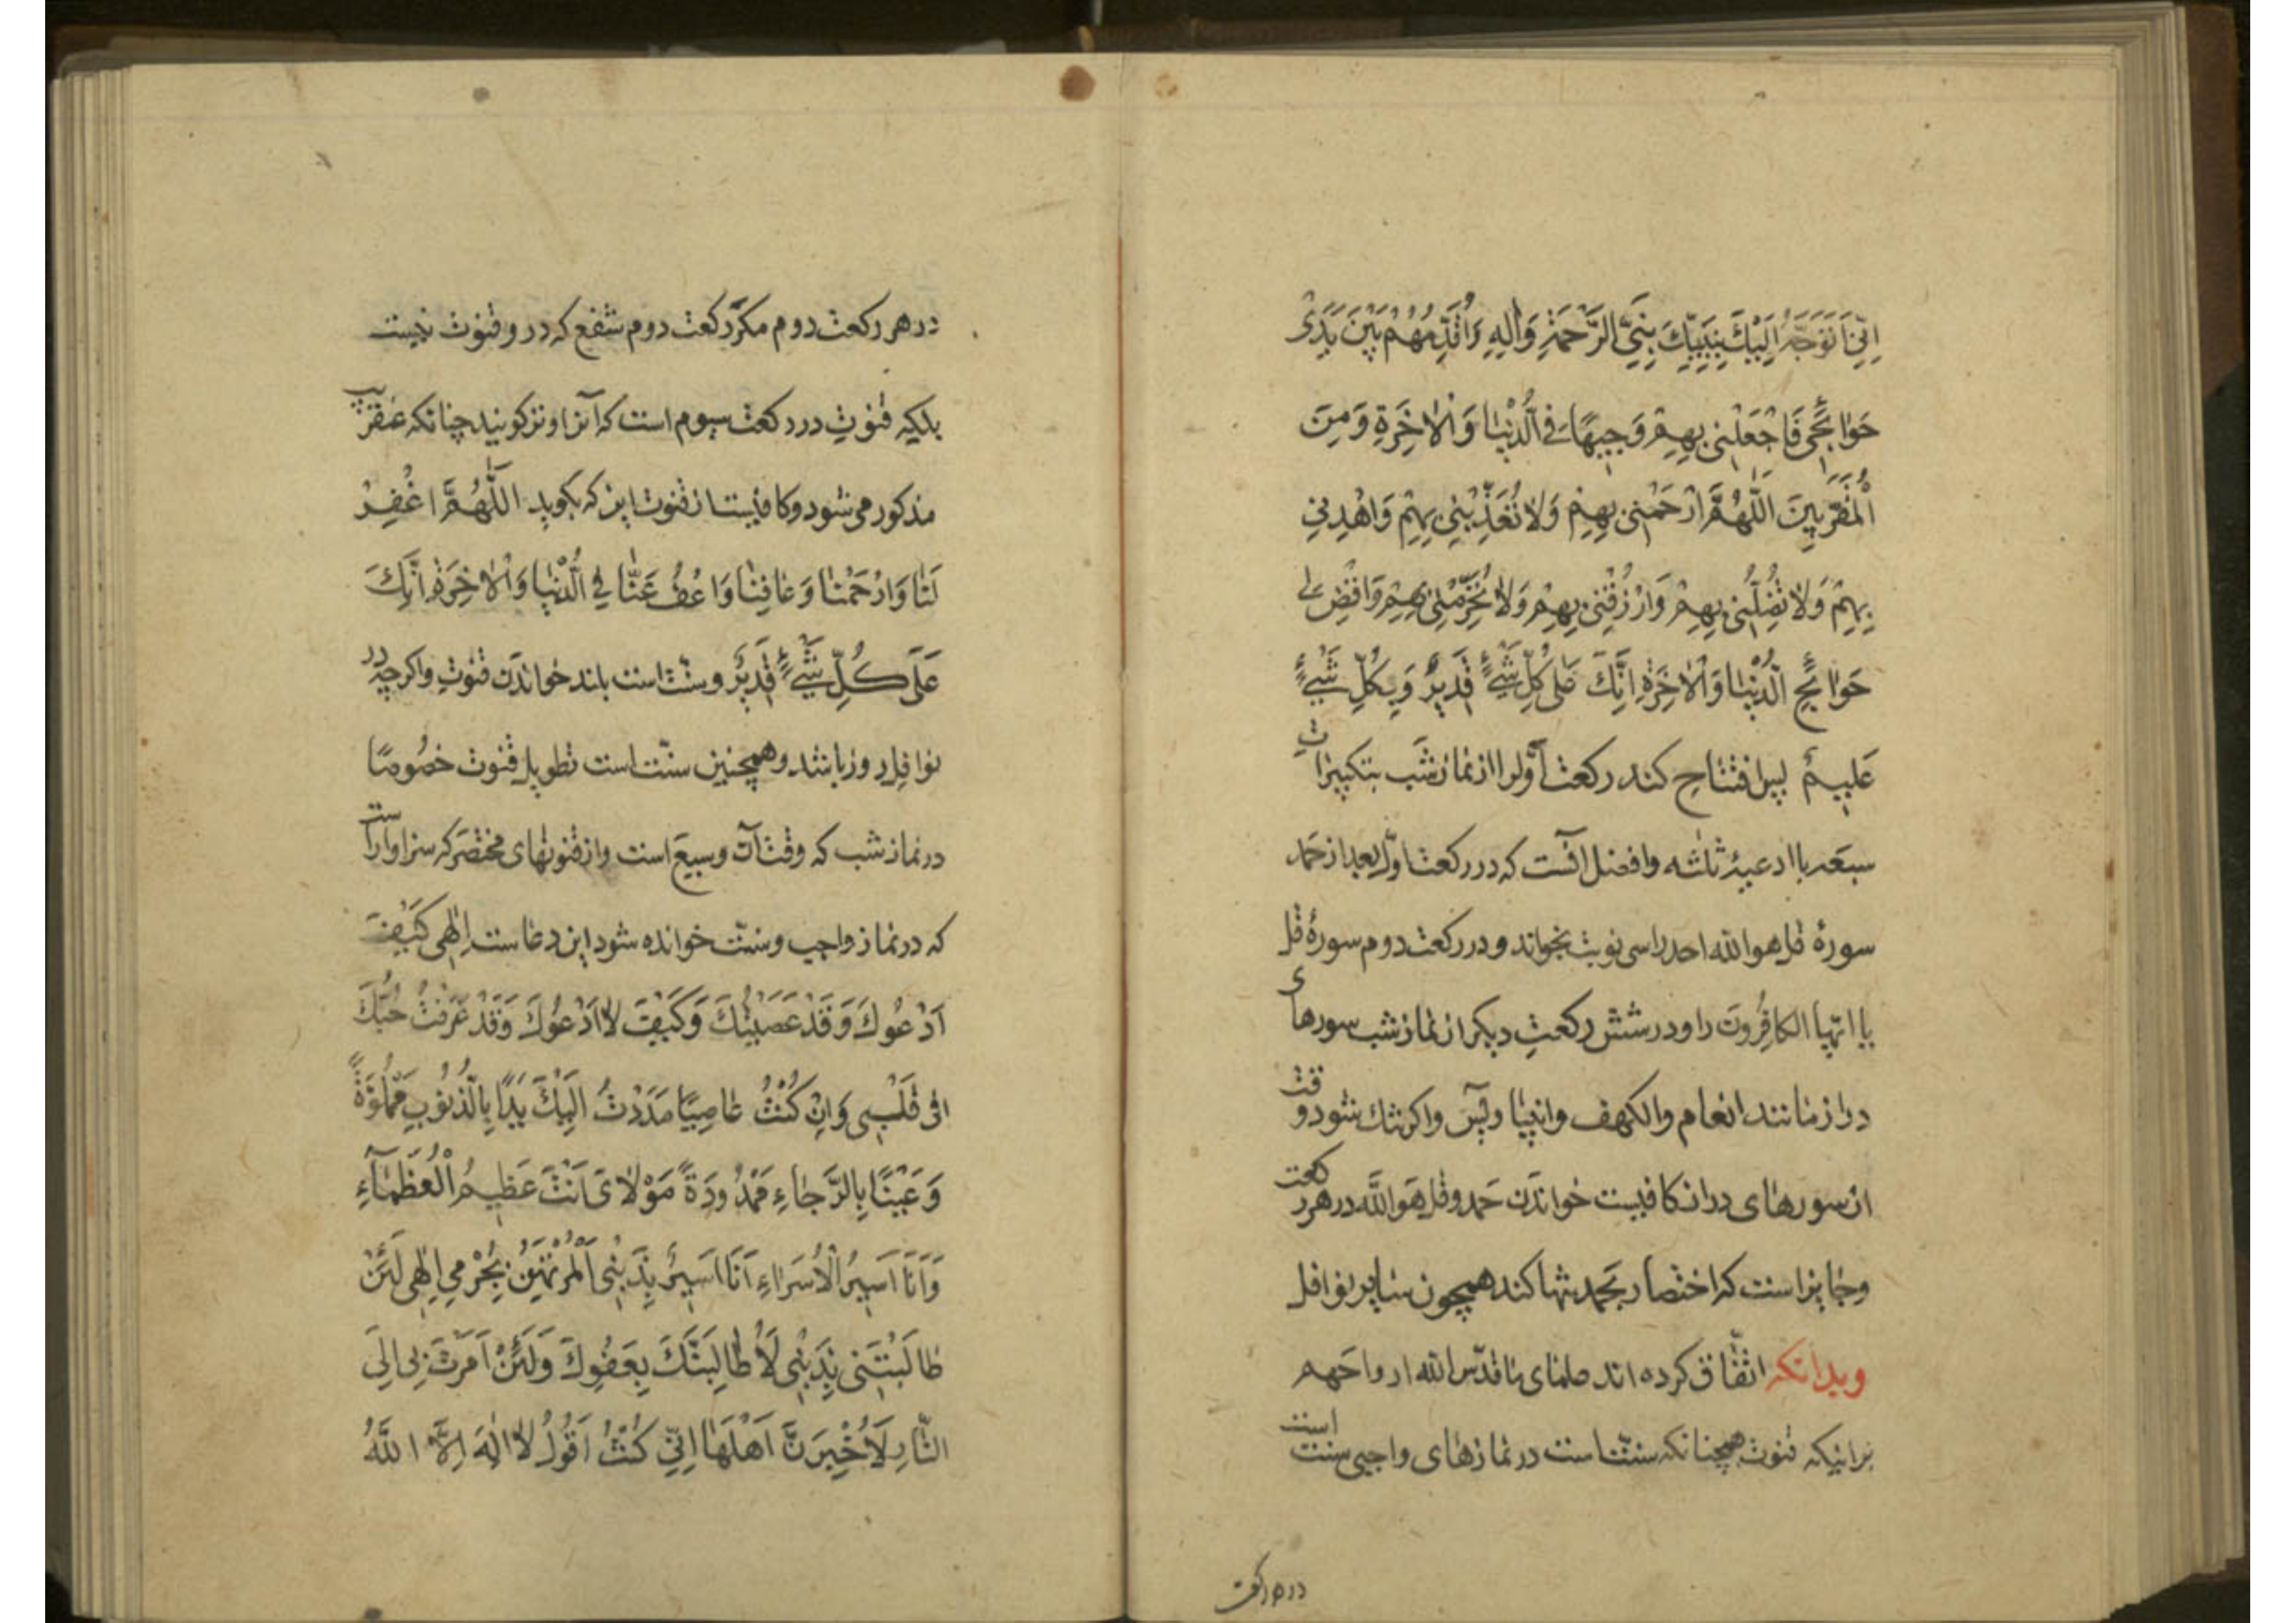 اِنّی اَتَوَجَّهُ اِلَیْكَ بِنَبِیِّكَ نَبِیِّ الرَّحْمَةِ وَاٰلِهِ وَاُقَدِّمُهُمْ بَیْنَ یَدَیْ
حَوٰائِجی فَاجْعَلْنی بِهِمْ وَجیهًا فِی الدُّنْیٰا وَالْاٰخِرَةِ وَمِنَ
الْمُقَرَّبینَ اَللّٰهُمَّ ارْحَمْنی بِهِمْ وَلاٰ تُعَذِّبْنی بِهِمْ وَاهْدِنی
بِهِمْ وَلاٰ تُضِلَّنی بِهِمْ وَارْزُقْنی بِهِمْ وَلاٰ تُحَرِّمْنی بِهِمْ وَاقْضِ لی
حَوٰائِجَ الدُّنْیٰا وَالْاٰخِرَةِ اِنَّكَ عَلیٰ كُلِّ شَیْءٍ قَدیرٌ وَبِكُلِّ شَیْءٍ
عَلیمٌ پس افتتاح کند رکعت اَوّلرا از نماز شب بتکبیرات
سبعه با ادعیهٔ ثلثه وافضل آنست که در رکعت اوّل بعد از حمد
سورهٔ قل هو الله احد را سی نوبت بخواند و در رکعت دوم سورهٔ قل
یا ایّها الکافِرُونَ را و در شش رکعتِ دیکر از نماز شب سورهای
دراز مانند انعام والکهف وانبیا ویس واکر تنك شود وقت
از سورهای دراز کافیست خواندَن حَمد وقل هَوَ اللَّه در هر رکعت
وجایز است که اختصار بحَمد تنها کند همچون سایر نوافل
وبدانکه اتّفاق کرده اند علمای ما قدّس الله ارواحَهم
برانیکه قنوت همچنانکه سنّت است در نمازهای واجبی سنت است
در هر رکعت
در هر رکعت دوم مکرّ رکعت دوم شفع که در و قنوت نیست
بلکه قنوتِ در رکعت سیوم است که آنرا وتر کویند چنانکه عنقریب
مذکور می شود وکافیست از قنوت این که بکوید اللَّهُمَّ اغْفِرْ
لَنٰا وَارْحَمْنٰا وَعٰافِنٰا وَاعْفُ عَنّٰا فِی الدُّنْیٰا وَالْاٰخِرَةِ اِنَّكَ
عَلیٰ كُلِّ شَیْءٍ قَدیرٌ وسنّت است بلند خواندَن قنوتِ واکرچه در
نوافل روز باشد وهمچنین سنّت است تطویل قنوت خصُوصًا
در نماز شب که وقت آن وسیعَ است واز قنوتهای مختصَر که سزاوارست
که در نماز واجب وسنّت خوانده شود این دعاست اِلٰهی كَیْفَ
اَدْعُوكَ وَقَدْ عَصَیْتُكَ وَكَیْفَ لاٰ اَدْعُوكَ وَقَدْ عَرَفْتُ حُبَّكَ
فی قَلْبی وَاِنْ كُنْتُ عٰاصِیًا مَدَدْتُ اِلَیْكَ یَدًا بِالذُّنُوبِ مَمْلُوَّةً
وَعَیْنًا بِالرَّجٰاءِ مَمْدُودَةً مَوْلاٰیَ اَنْتَ عَظیمُ الْعُظَمٰاءِ
وَاَنَا اَسیرُ الْاُسَرٰاءِ اَنَا اَسیرٌ بِذَنْبِی الْمُرْتَهَنُ بِجُرْمی اِلٰهی لَئِنْ
طٰالَبْتَنی بِذَنْبی لَاُطٰالِبَنَّكَ بِعَفْوِكَ وَلَئِنْ اَمَرْتَ بی اِلَی
النّٰارِ لَاُخْبِرَنَّ اَهْلَهٰا اِنّی كُنْتُ اَقُولُ لاٰ اِلٰهَ اِلَّا اللَّهُ